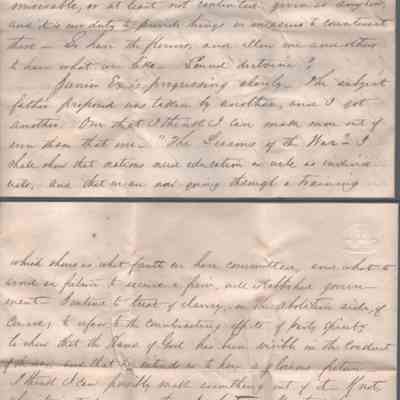 removable, or at least not
and it is our duty to provide things or measures to counteract
them — So have the flowers, and allow me and others
to have what we like. Sound doctrine?
Junior Ex. is progressing slowly. The subject
father proposed was taken by another, and I got
another. One that I think I can make more out of
even than that one — "The Lessons of the War" — I
shall show that nations need education as well as individ-
uals, and that we are now going through a training
which shows us what faults we have committed, and what to
avoid in future to secure a firm, well established govern-
ment — I intend to treat of slavery, on the abolition side, of
course, to refer to the counteracting effects of party spirit,
to show that the Hand of God has been visible in the conduct
of the war and that He intends us to have a glorious future
I think I can possibly make something out of it — If not